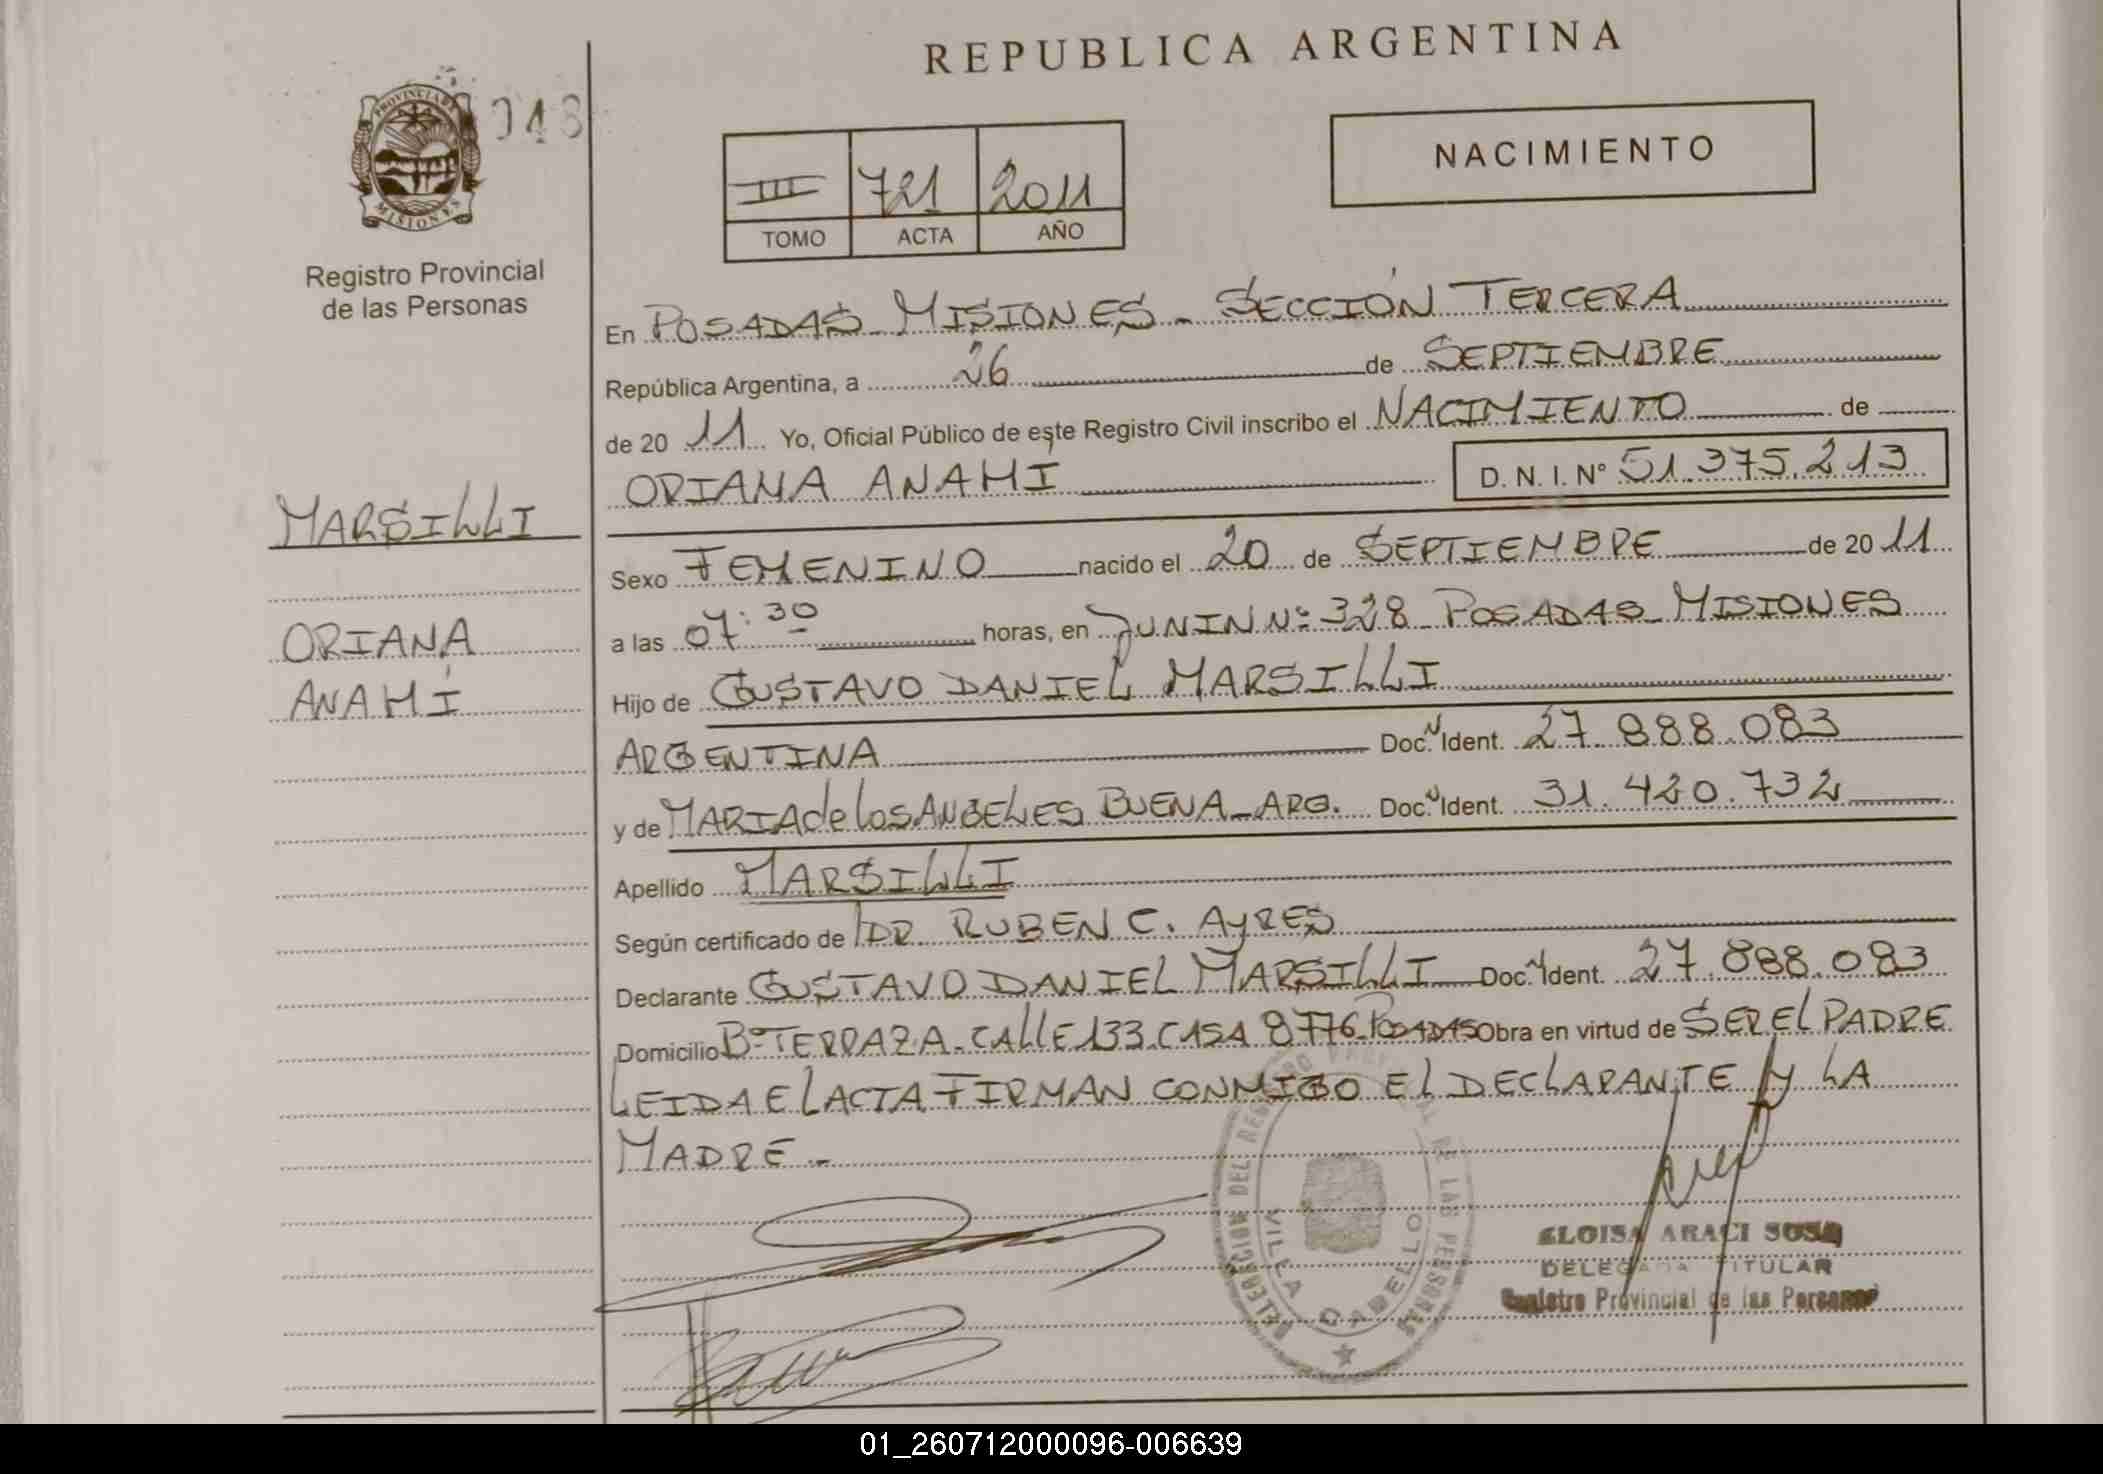 REPUBLICA ARGENTINA
PROVINCIA DE
MISIONES
048
NACIMIENTO
III 721 2011
TOMO ACTA AÑO
Registro Provincial
de las Personas
En POSADAS - MISIONES - SECCIÓN TERCERA
República Argentina, a 26 de SEPTIEMBRE
de 20 11 Yo, Oficial Público de este Registro Civil inscribo el NACIMIENTO de
ORIANA ANAHI D. N. I. N° 51.375.213
MARSILLI
ORIANA
ANAHÍ
Sexo FEMENINO nacido el 20 de SEPTIEMBRE de 20 11
a las 07:30 horas, en JUNIN Nº 328 - POSADAS - MISIONES
Hijo de GUSTAVO DANIEL MARSILLI
ARGENTINA Doc. N Ident. 27.888.083
y de MARIA de los ANGELES BUENA - ARG. Doc. N Ident. 31.420.732
Apellido MARSILLI
Según certificado de DR. RUBEN C. AYRES
Declarante GUSTAVO DANIEL MARSILLI Doc. N Ident. 27.888.083
Domicilio Bº TERRAZA - CALLE 133 - CASA 8776 - POSADAS Obra en virtud de SER EL PADRE
LEIDA EL ACTA FIRMAN CONMIGO EL DECLARANTE Y LA
MADRE -
DELEGACION DEL REGISTRO PROVINCIAL DE LAS PERSONAS
VILLA CABELLO
ELOISA ARACI SOSA
DELEGADA TITULAR
Registro Provincial de las Personas
01_260712000096-006639